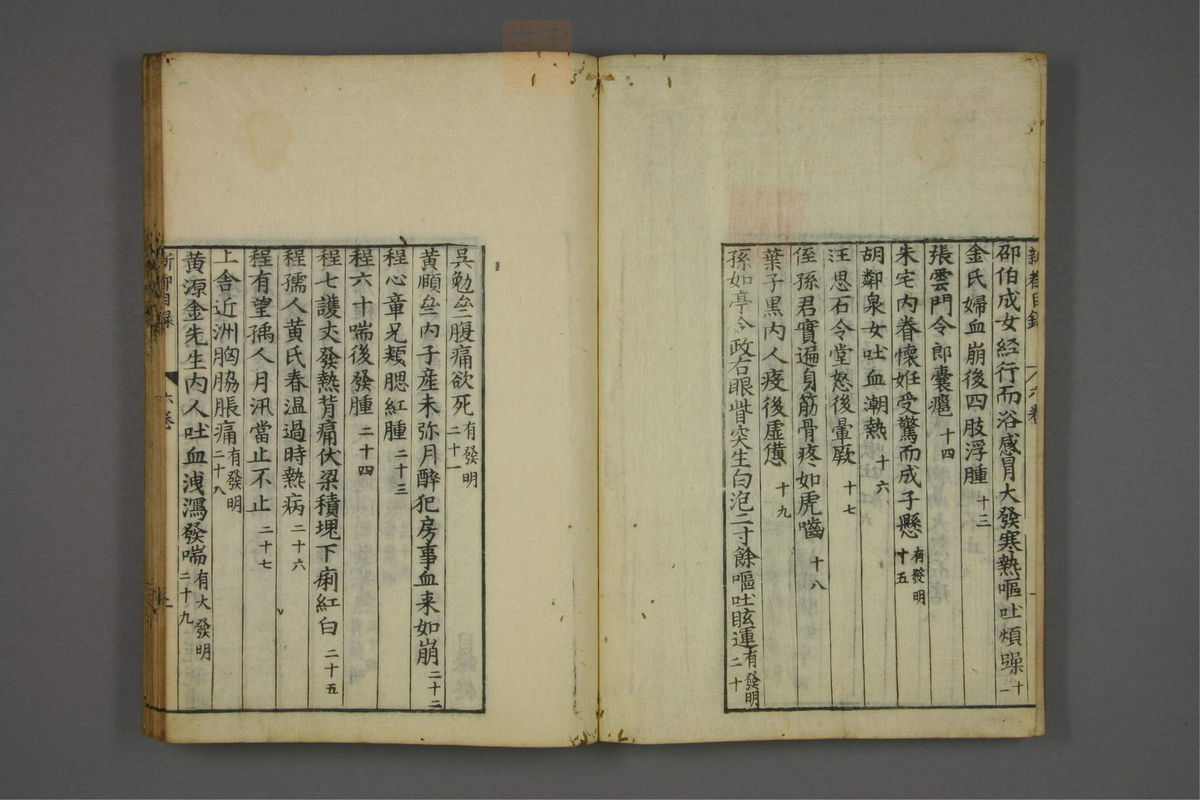 新都目錄 六卷
邵伯成女經行而浴感冐大發寒熱嘔吐煩躁十一
金氏婦血崩後四肢浮腫十三
張雲門令郎囊癰十四
朱宅内眷懷妊受驚而成子懸有發明十五
胡鄰泉女吐血潮熱十六
汪思石令堂怒後暈厥十七
侄孫君實遍身筋骨疼如虎嚙十八
葉子黑内人疫後虛憊十九
孫如亭令政右眼眥突生白泡二寸餘嘔吐眩運有發明二十
吳勉㘴腹痛欲死有發明二十一
黃願㘴内子產未弥月醉犯房事血来如崩二十二
程心章兄頰腮紅腫二十三
程六十喘後發腫二十四
程七護丈發熱背痛伏梁積塊下痢紅白二十五
程孺人黃氏春温過時熱病二十六
程有望孺人月汛當止不止二十七
上舎近洲胸脇脹痛有發明二十八
黃源金先生内人吐血洩瀉發喘有大發明二十九
新都目録 六卷